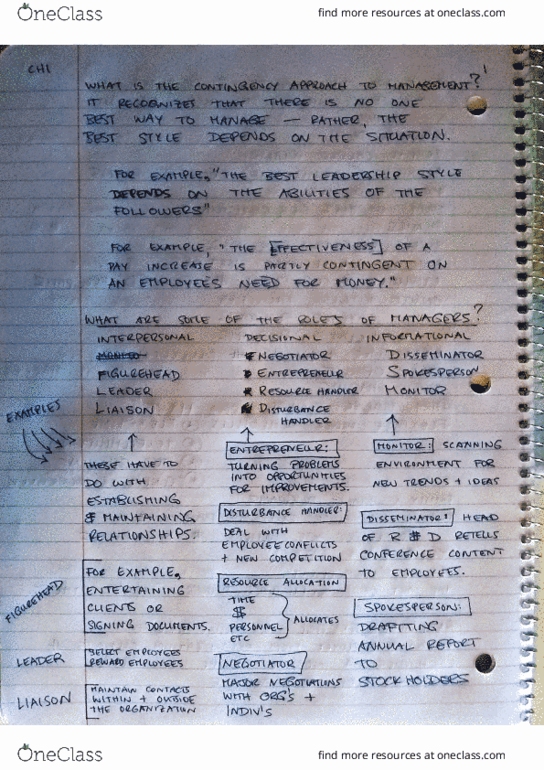 OneClass
find more resources at oneclass.com
CH1
1
WHAT IS THE CONTINGENCY APPROACH TO MANAGEMENT?
IT RECOGNIZES THAT THERE IS NO ONE
BEST WAY TO MANAGE — RATHER, THE
BEST STYLE DEPENDS ON THE SITUATION.
FOR EXAMPLE, "THE BEST LEADERSHIP STYLE
DEPENDS ON THE ABILITIES OF THE
FOLLOWERS"
FOR EXAMPLE, "THE [EFFECTIVENESS] OF A
PAY INCREASE IS PARTLY CONTINGENT ON
AN EMPLOYEE'S NEED FOR MONEY."
WHAT ARE SOME OF THE ROLES OF MANAGERS?
INTERPERSONAL
FIGUREHEAD
LEADER
LIAISON
DECISIONAL
NEGOTIATOR
ENTREPRENEUR
RESOURCE HANDLER
DISTURBANCE
HANDLER
INFORMATIONAL
DISSEMINATOR
SPOKESPERSON
MONITOR
EXAMPLES
THESE HAVE TO
DO WITH
ESTABLISHING
& MAINTAINING
RELATIONSHIPS.
FIGUREHEAD
FOR EXAMPLE,
ENTERTAINING
CLIENTS OR
SIGNING DOCUMENTS.
LEADER
SELECT EMPLOYEES
REWARD EMPLOYEES
LIAISON
MAINTAIN CONTACTS
WITHIN + OUTSIDE
THE ORGANIZATION
ENTREPRENEUR:
TURNING PROBLEMS
INTO OPPORTUNITIES
FOR IMPROVEMENTS.
DISTURBANCE HANDLER:
DEAL WITH
EMPLOYEE CONFLICTS
+ NEW COMPETITION
RESOURCE ALLOCATION
TIME
$
PERSONNEL
ETC
ALLOCATES
NEGOTIATOR
MAJOR NEGOTIATIONS
WITH ORG'S +
INDIV'S
MONITOR: SCANNING
ENVIRONMENT FOR
NEW TRENDS + IDEAS
DISSEMINATOR: HEAD
OF R & D RETELLS
CONFERENCE CONTENT
TO EMPLOYEES.
SPOKESPERSON:
DRAFTING
ANNUAL REPORT
TO
STOCKHOLDERS
OneClass
find more resources at oneclass.com